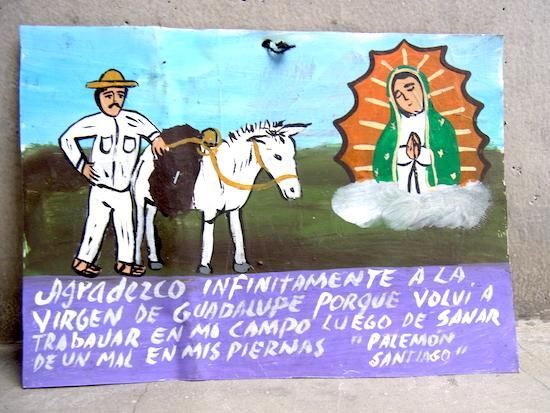 Agradezco INFINITAMENTE A LA
VIRGEN DE GUADALUPE PORQUE VOLVI A
TRABAJAR EN MO CAMPO LUEGO DE SANAR
DE UN MAL EN MIS PIERNAS "PALEMÓN
SANTIAGO"